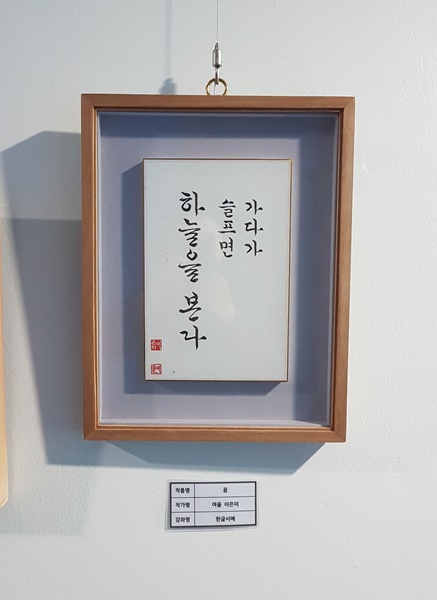 가다가
슬프면
하늘을 본다
작품명 꿈
작가명 여울 이은미
강좌명 한글서예